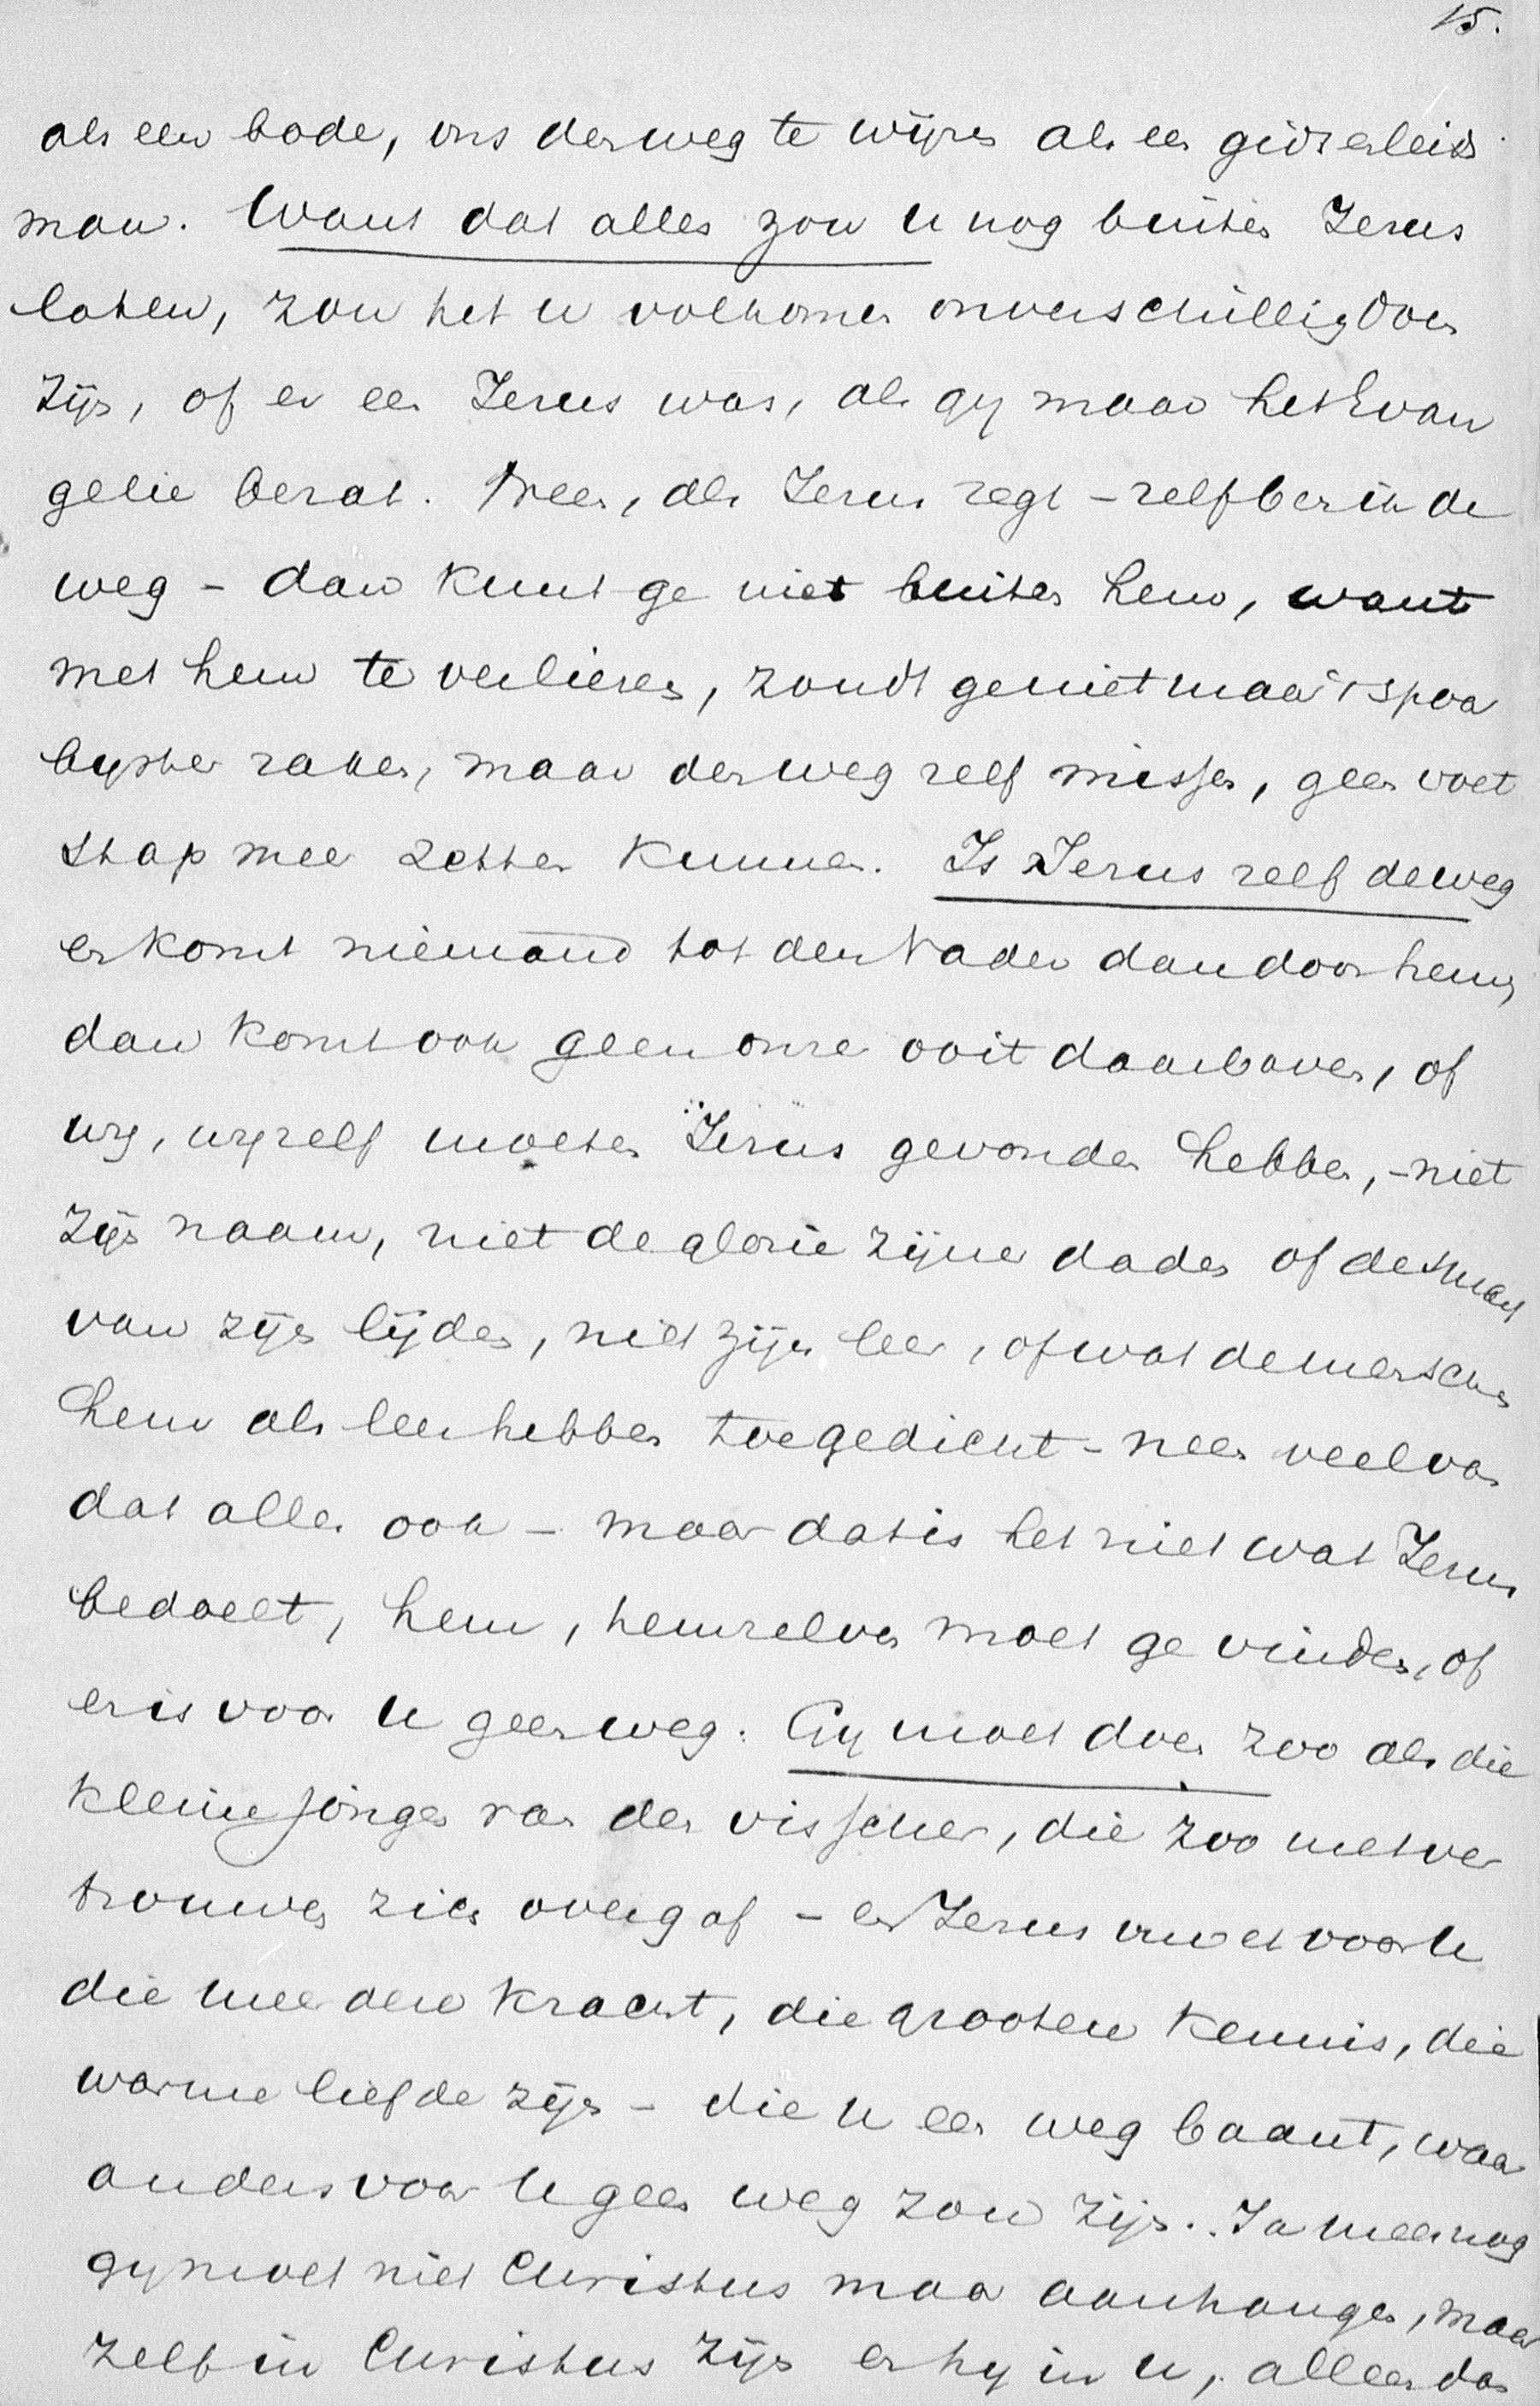 15.
als een bode, ons den weg te wijzen als een gids en leids
man. Want dat alles zou u nog buiten Jezus
laten, zou het u volkomen onverschillig doen
zijn, of er een Jezus was, als gy maar het Evan
gelie bezat. Neen, als Jezus zegt – zelf ben ik de
weg – dan kunt ge niet buiten hem, want
met hem te verliezen, zoudt ge niet maar 't spoor
byster raken, maar den weg zelf missen, geen voet
stap meer zetten kunnen. Is Jezus zelf de weg
en komt niemand tot den Vader dan door hem,
dan komt ook geen onzer ooit daarboven, of
wy, wyzelf moeten Jezus gevonden hebben, – niet
zijn naam, niet de glorie zijner daden of de smart
van zijn lijden, niet zijn leer, of wat de menschen
hem als leer hebben toegedicht – neen veel van
dat alles ook – maar dat is het niet wat Jezus
bedoelt, hem, hemzelven moet ge vinden, of
er is voor u geen weg. Gy moet doen zoo als die
kleine jongen van den visscher, die zoo met ver
trouwen zich overgaf – en Jezus moet voor u
die meerdere kracht, die grootere kennis, die
warme liefde zijn – die u een weg baant, waar
anders voor u geen weg zou zijn. Ja meer nog
gy moet niet Christus maar aanhangen, maar
zelf in Christus zijn en hy in u, alleen dan